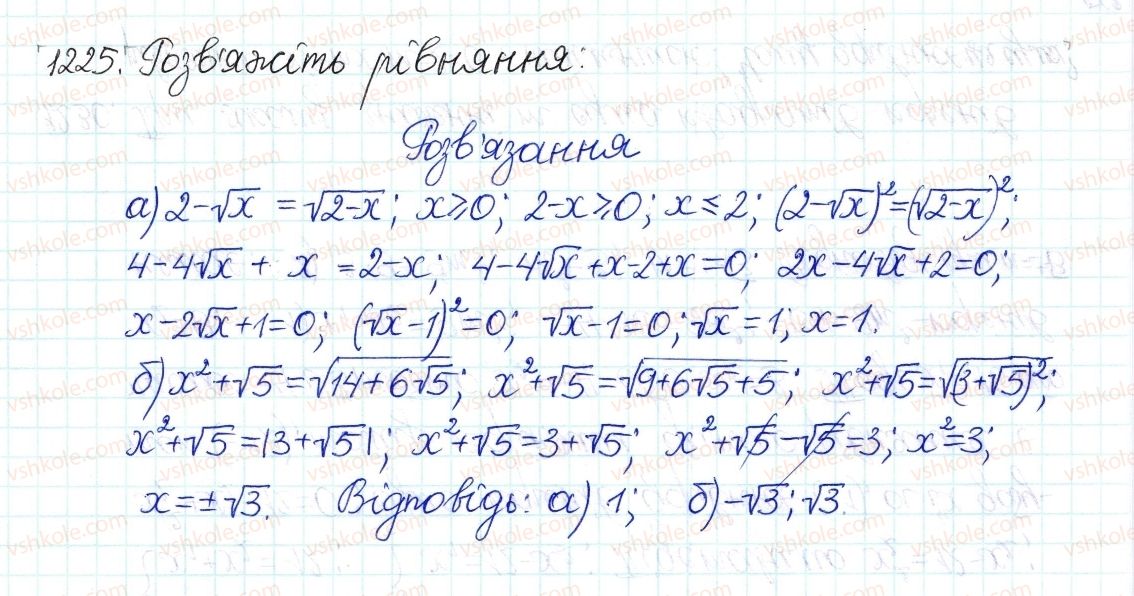 1225. Розв'яжіть рівняння:
Розв'язання
а) 2-√x = √2-x; x⩾0; 2-x⩾0; x ≤ 2; (2-√x)²=(√2-x)²;
4-4√x + x = 2-x; 4-4√x+x-2+x=0; 2x-4√x+2=0;
x-2√x+1=0; (√x-1)²=0; √x-1=0; √x=1; x=1.
б) x²+√5=√14+6√5; x²+√5=√9+6√5+5; x²+√5=√(3+√5)²;
x²+√5=|3+√5|; x²+√5=3+√5; x²+√5-√5=3; x²=3;
x=±√3. Відповідь: а) 1; б) -√3; √3.